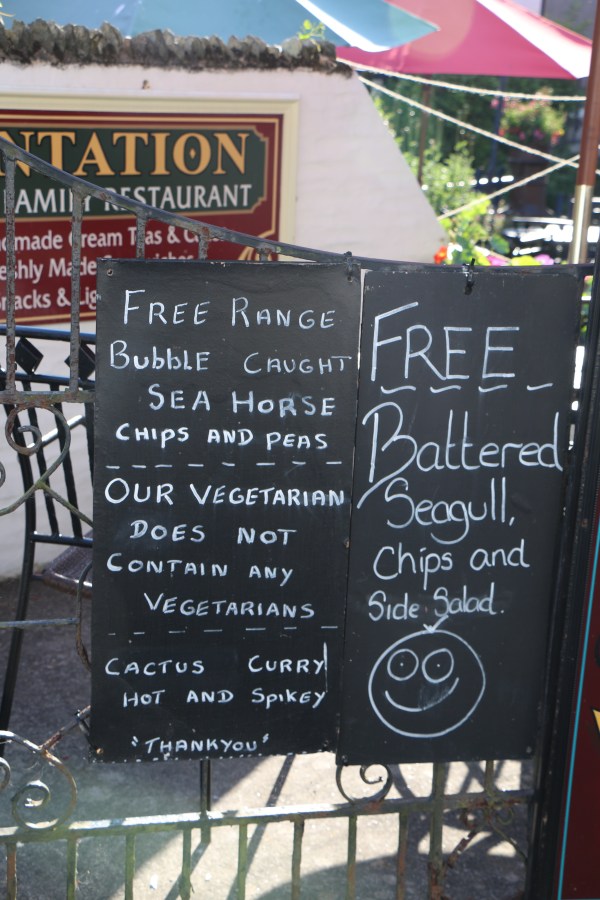 NTATION
FAMILY RESTAURANT
Cream Teas &
FREE RANGE
BubbLE CAUGHT
SEA HORSE
CHIPS AND PEAS
OUR VEGETARIAN
DOES NOT
CONTAIN ANY
VEGETARIANS
CACTUS CURRY
HOT AND SPIKEY
"THANKYOU"
FREE
Battered
Seagull,
Chips and
Side Salad.